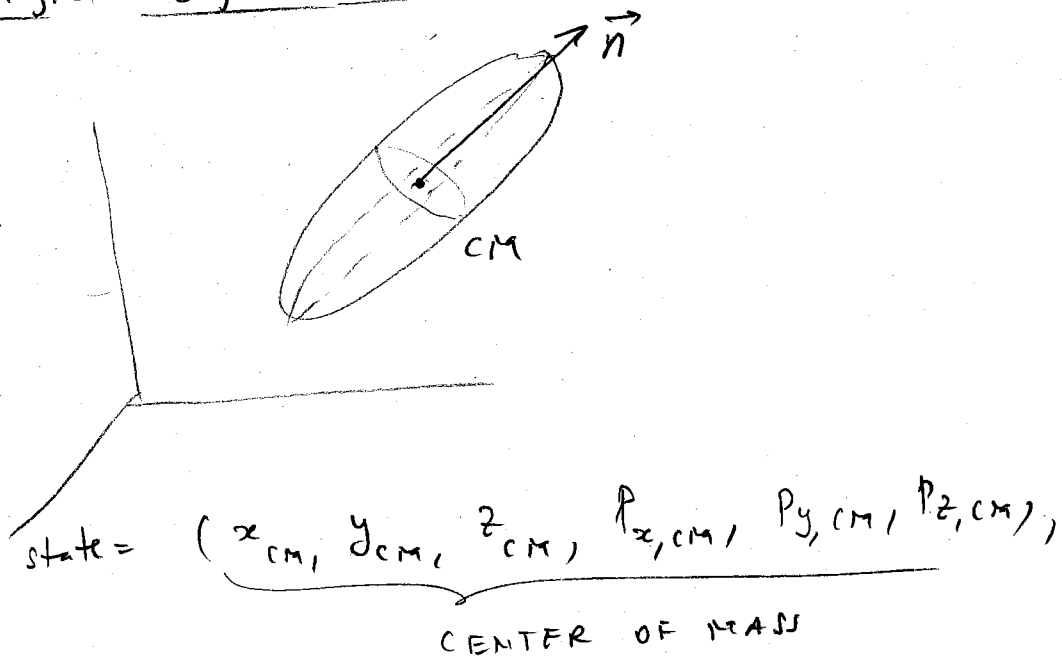 n
CM
state = ( x_CM, y_CM, z_CM, P_x,CM, P_y,CM, P_z,CM),
CENTER OF MASS